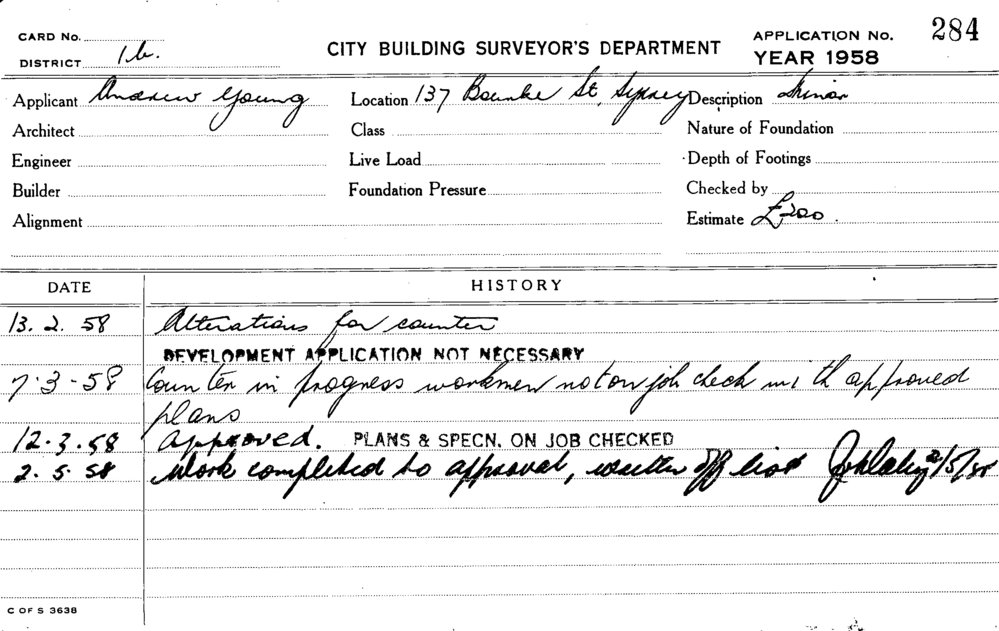 CARD No.
DISTRICT 1b.
CITY BUILDING SURVEYOR'S DEPARTMENT
APPLICATION No. 284
YEAR 1958
Applicant Andrew Young Location 137 Bourke St, Sydney Description Minor
Architect Class Nature of Foundation
Engineer Live Load Depth of Footings
Builder Foundation Pressure Checked by
Alignment Estimate £200
DATE HISTORY
13. 2. 58 Alterations for counter
DEVELOPMENT APPLICATION NOT NECESSARY
7.3-58 Counter in progress workmen not on job check with approved
plans
12.3.58 approved. PLANS & SPECN. ON JOB CHECKED
2.5.58 Work completed to approval, written off list 2/5/58
C OF S 3638